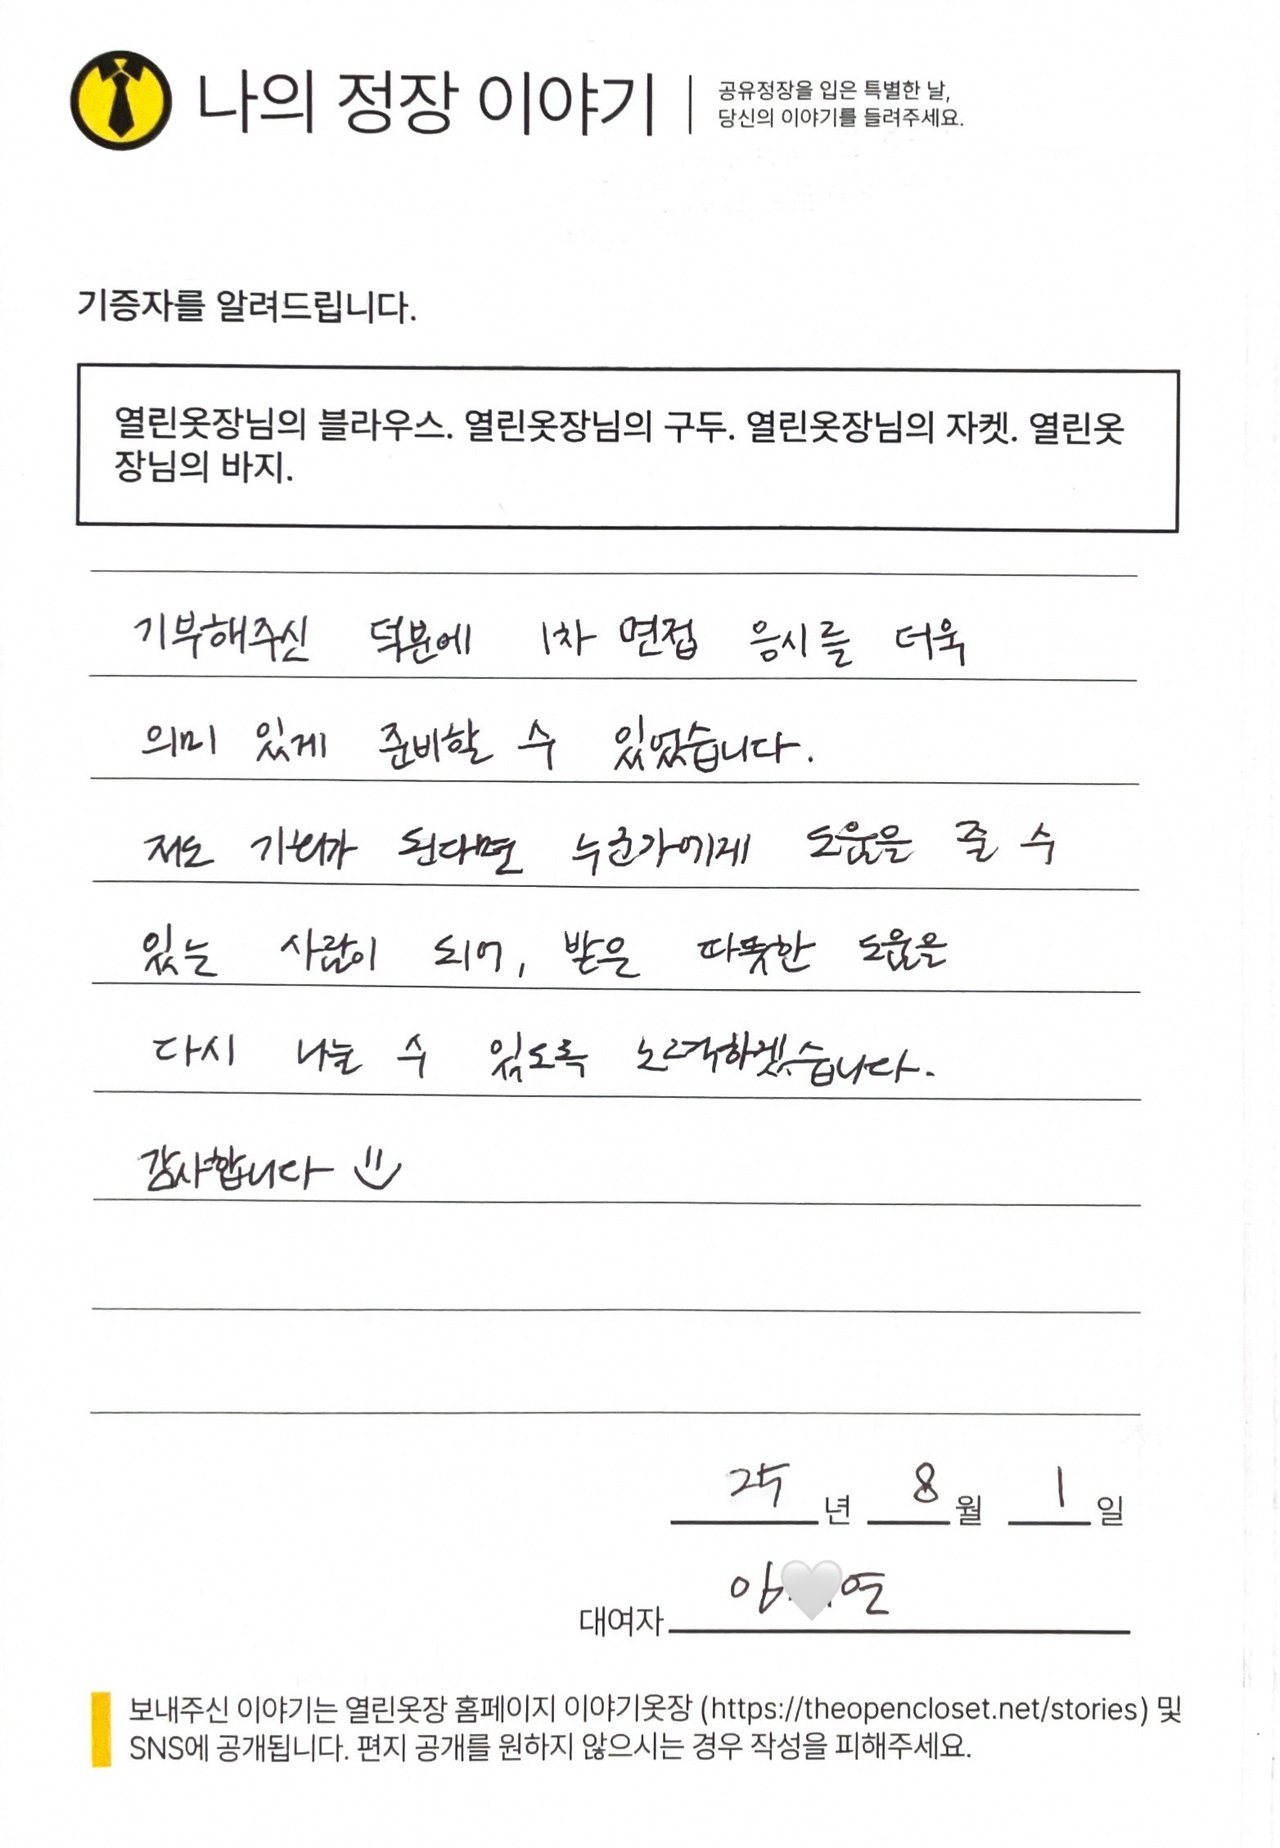 나의 정장 이야기
공유정장을 입은 특별한 날,
당신의 이야기를 들려주세요.
기증자를 알려드립니다.
열린옷장님의 블라우스. 열린옷장님의 구두. 열린옷장님의 자켓. 열린옷
장님의 바지.
기부해주신 덕분에 1차 면접 응시를 더욱
의미 있게 준비할 수 있었습니다.
저도 기회가 된다면 누군가에게 도움을 줄 수
있는 사람이 되어, 받은 따뜻한 도움을
다시 나눌 수 있도록 노력하겠습니다.
감사합니다
25년 8월 1일
대여자 연
보내주신 이야기는 열린옷장 홈페이지 이야기옷장 (https://theopencloset.net/stories) 및
SNS에 공개됩니다. 편지 공개를 원하지 않으시는 경우 작성을 피해주세요.